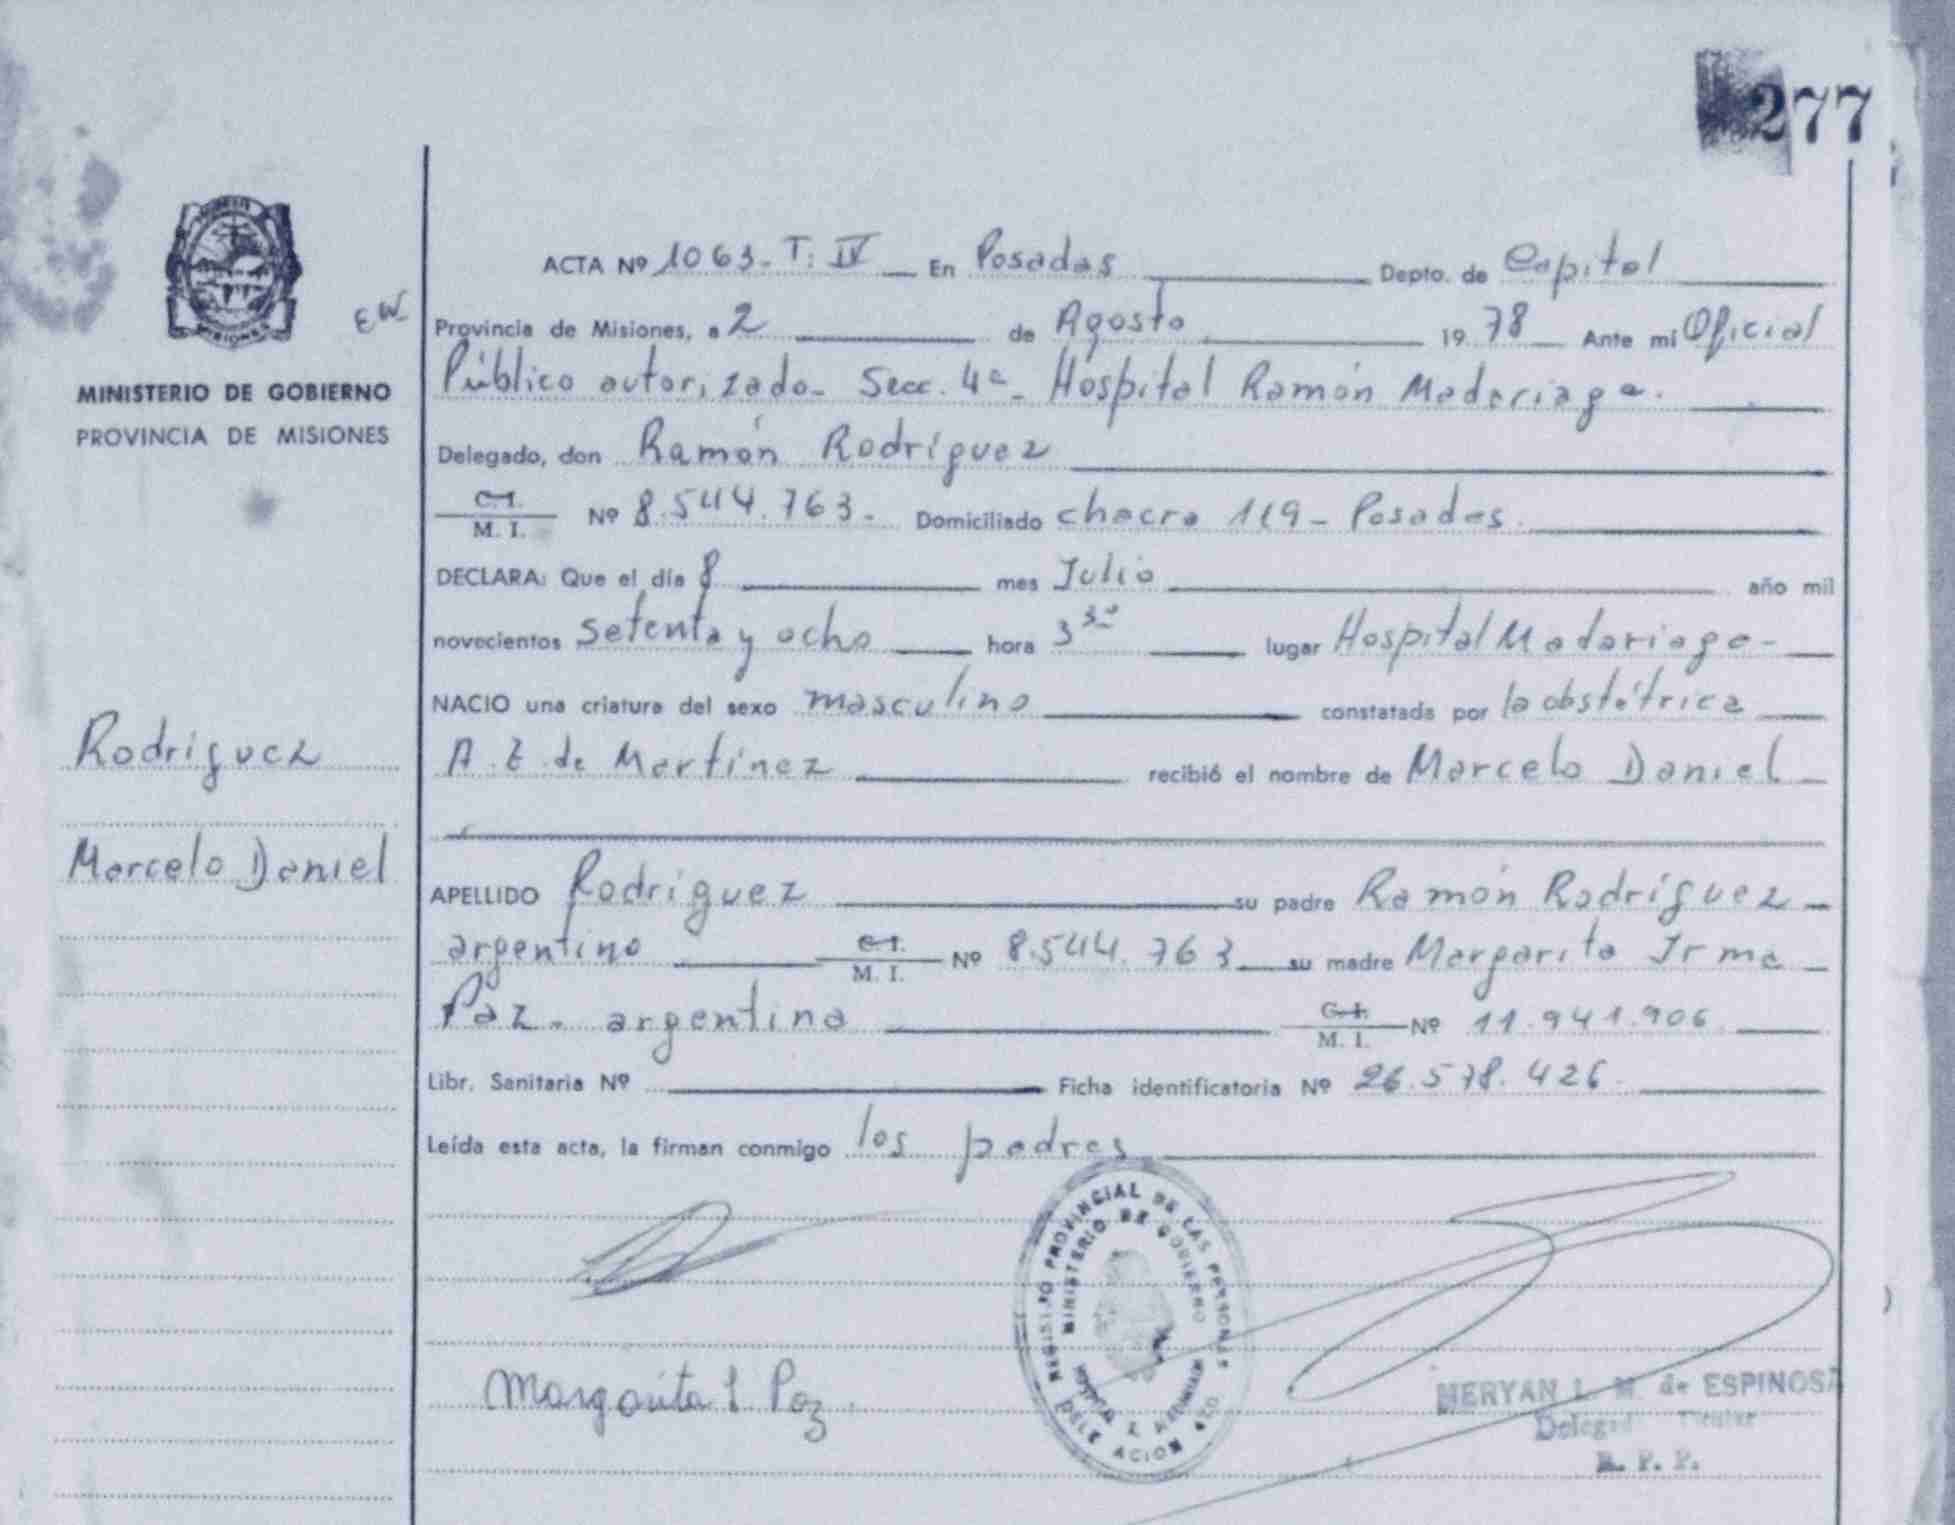 277
MISIONES
EW
MINISTERIO DE GOBIERNO
PROVINCIA DE MISIONES
Rodriguez
Marcelo Daniel
ACTA Nº 1063. T: IV En Posadas Depto. de Capital
Provincia de Misiones, a 2 de Agosto 19 78 Ante mi Oficial
Público autorizado - Secc. 4a - Hospital Ramón Madariaga.
Delegado, don Ramón Rodríguez
C. I.
M. I. Nº 8.544.763. Domiciliado chacra 119 - Posadas.
DECLARA: Que el día 8 mes Julio año mil
novecientos setenta y ocho hora 3 30 lugar Hospital Madariaga -
NACIO una criatura del sexo masculino constatada por la obstétrica
A. E. de Martínez recibió el nombre de Marcelo Daniel
APELLIDO Rodríguez su padre Ramón Rodríguez
argentino C. I. M. I. Nº 8.544.763 su madre Margarita Irma
Paz - argentina C. I. M. I. Nº 11.941.906
Libr. Sanitaria Nº Ficha identificatoria Nº 26.578.426.
Leída esta acta, la firman conmigo los padres
REGISTRO PROVINCIAL DE LAS PERSONAS
MINISTERIO DE GOBIERNO
DELEGACION
Margarita I Paz.
MERYAN L. M. de ESPINOSA
Delegado Titular
R. P. P.